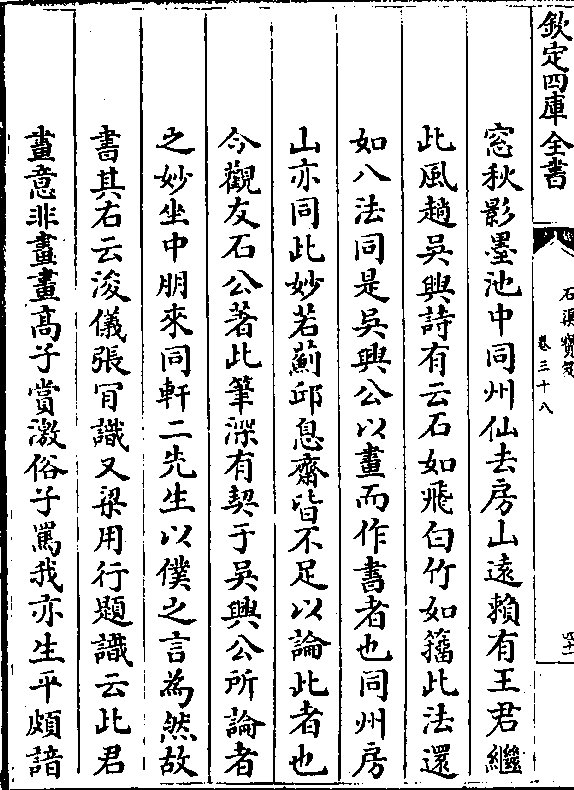 欽定四庫全書
石渠寶笈
卷三十八
四十
窓秋影墨池中同州仙去房山遠賴有王君繼
此風趙吳興詩有云石如飛白竹如籀此法還
如八法同是吳興公以畫而作書者也同州房
山亦同此妙若薊邱息齋皆不足以論此者也
今觀友石公著此筆深有契于吳興公所論者
之妙坐中朋來同軒二先生以僕之言為然故
書其右云浚儀張肎識又梁用行題識云此君
畫意非畫畫髙子賞激俗子罵我亦生平頗諳